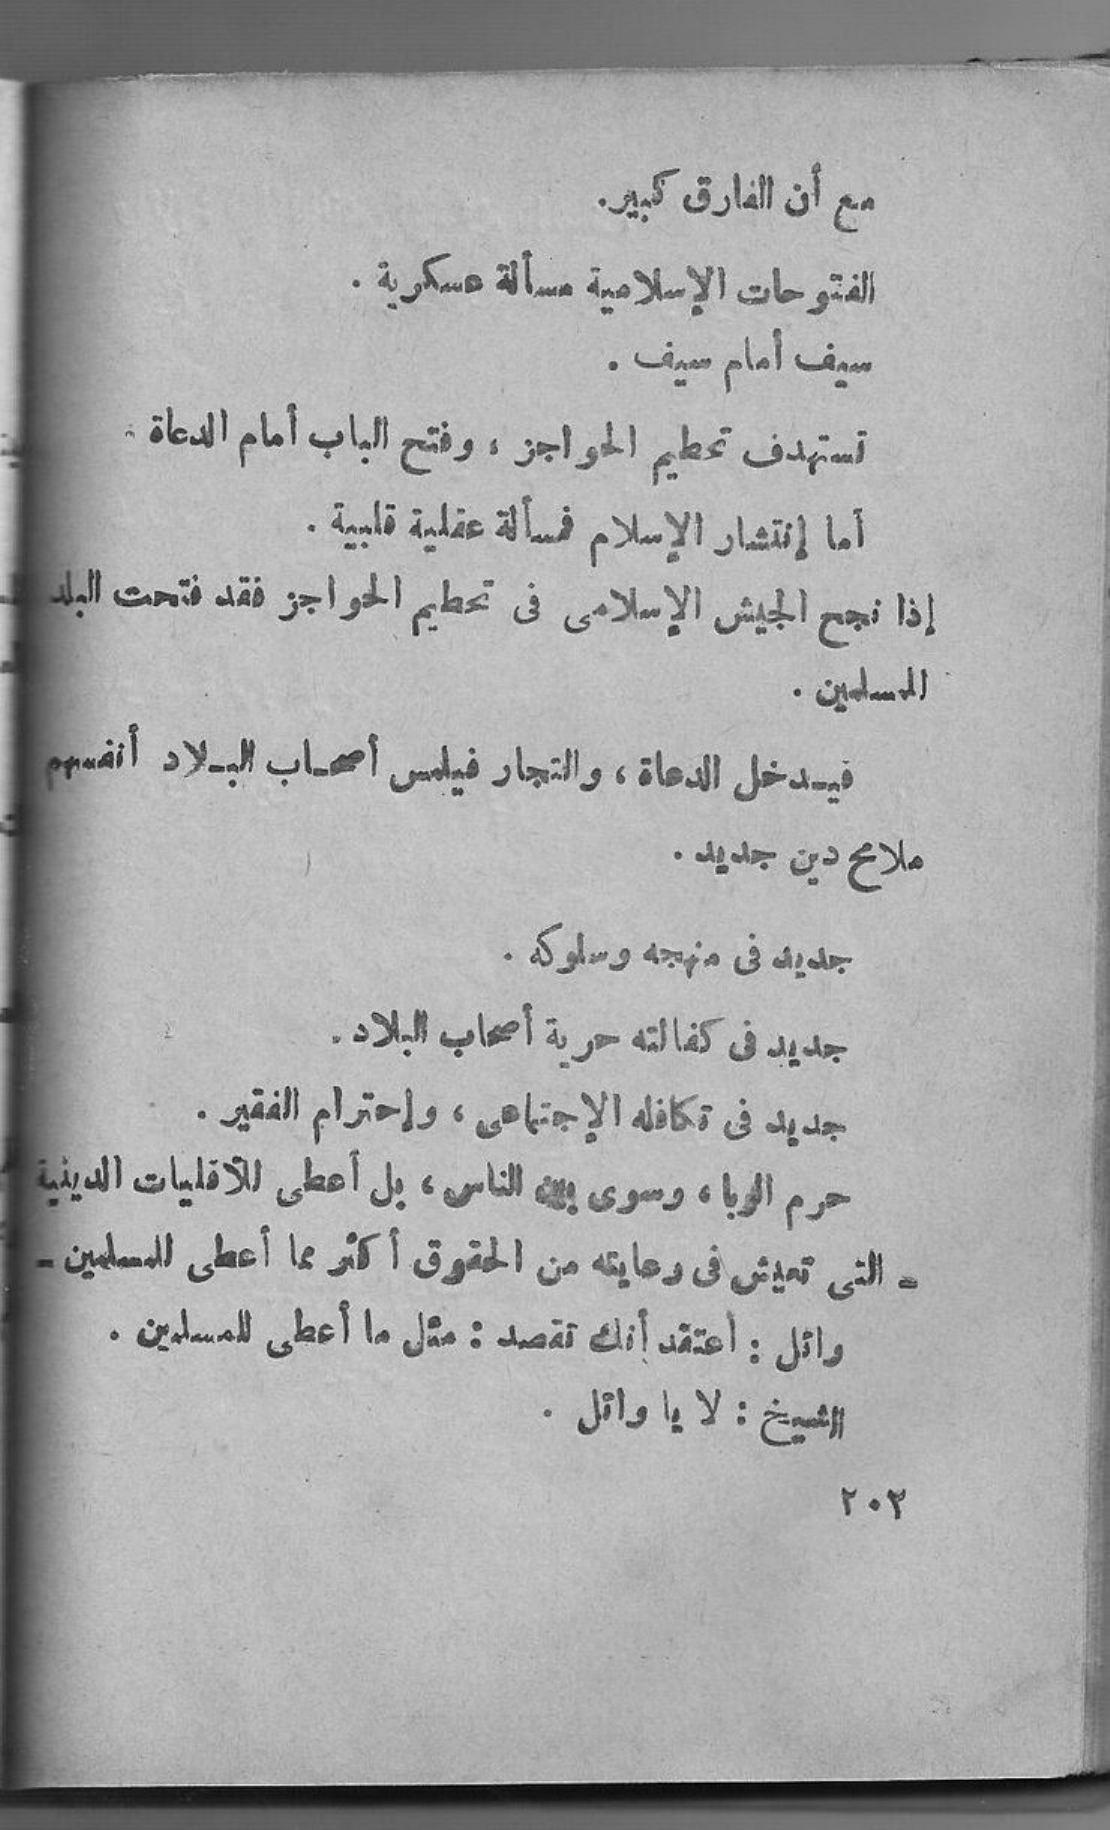 مع أن الفارق كبير.
الفتوحات الإسلامية مسألة عسكرية .
سيف أمام سيف .
تستهدف تحطيم الحواجز ، وفتح الباب أمام الدعاة .
أما إنتشار الإسلام فمسألة عقلية قلبية .
إذا نجح الجيش الإسلامى فى تحطيم الحواجز فقد فتحت البلد
المسلمين .
فيـدخل الدعاة ، والتجار فيلمس أصحـاب البـلاد أنفسهم
ملامح دين جديد .
جديد فى منهجه وسلوكه .
جديد فى كفالته حرية أصحاب البلاد .
جديد فى تكافله الإجتماعى ، وإحترام الفقير .
حرم الربا ، وسوى بين الناس ، بل أعطى للأقليات الدينية
ـ التى تعيش فى رعايته من الحقوق أكثر مما أعطى للمسلمين ـ
وائل : أعتقد أنك تقصد : مثل ما أعطى للمسلمين .
الشيخ : لا يا وائل .
٢٠٣